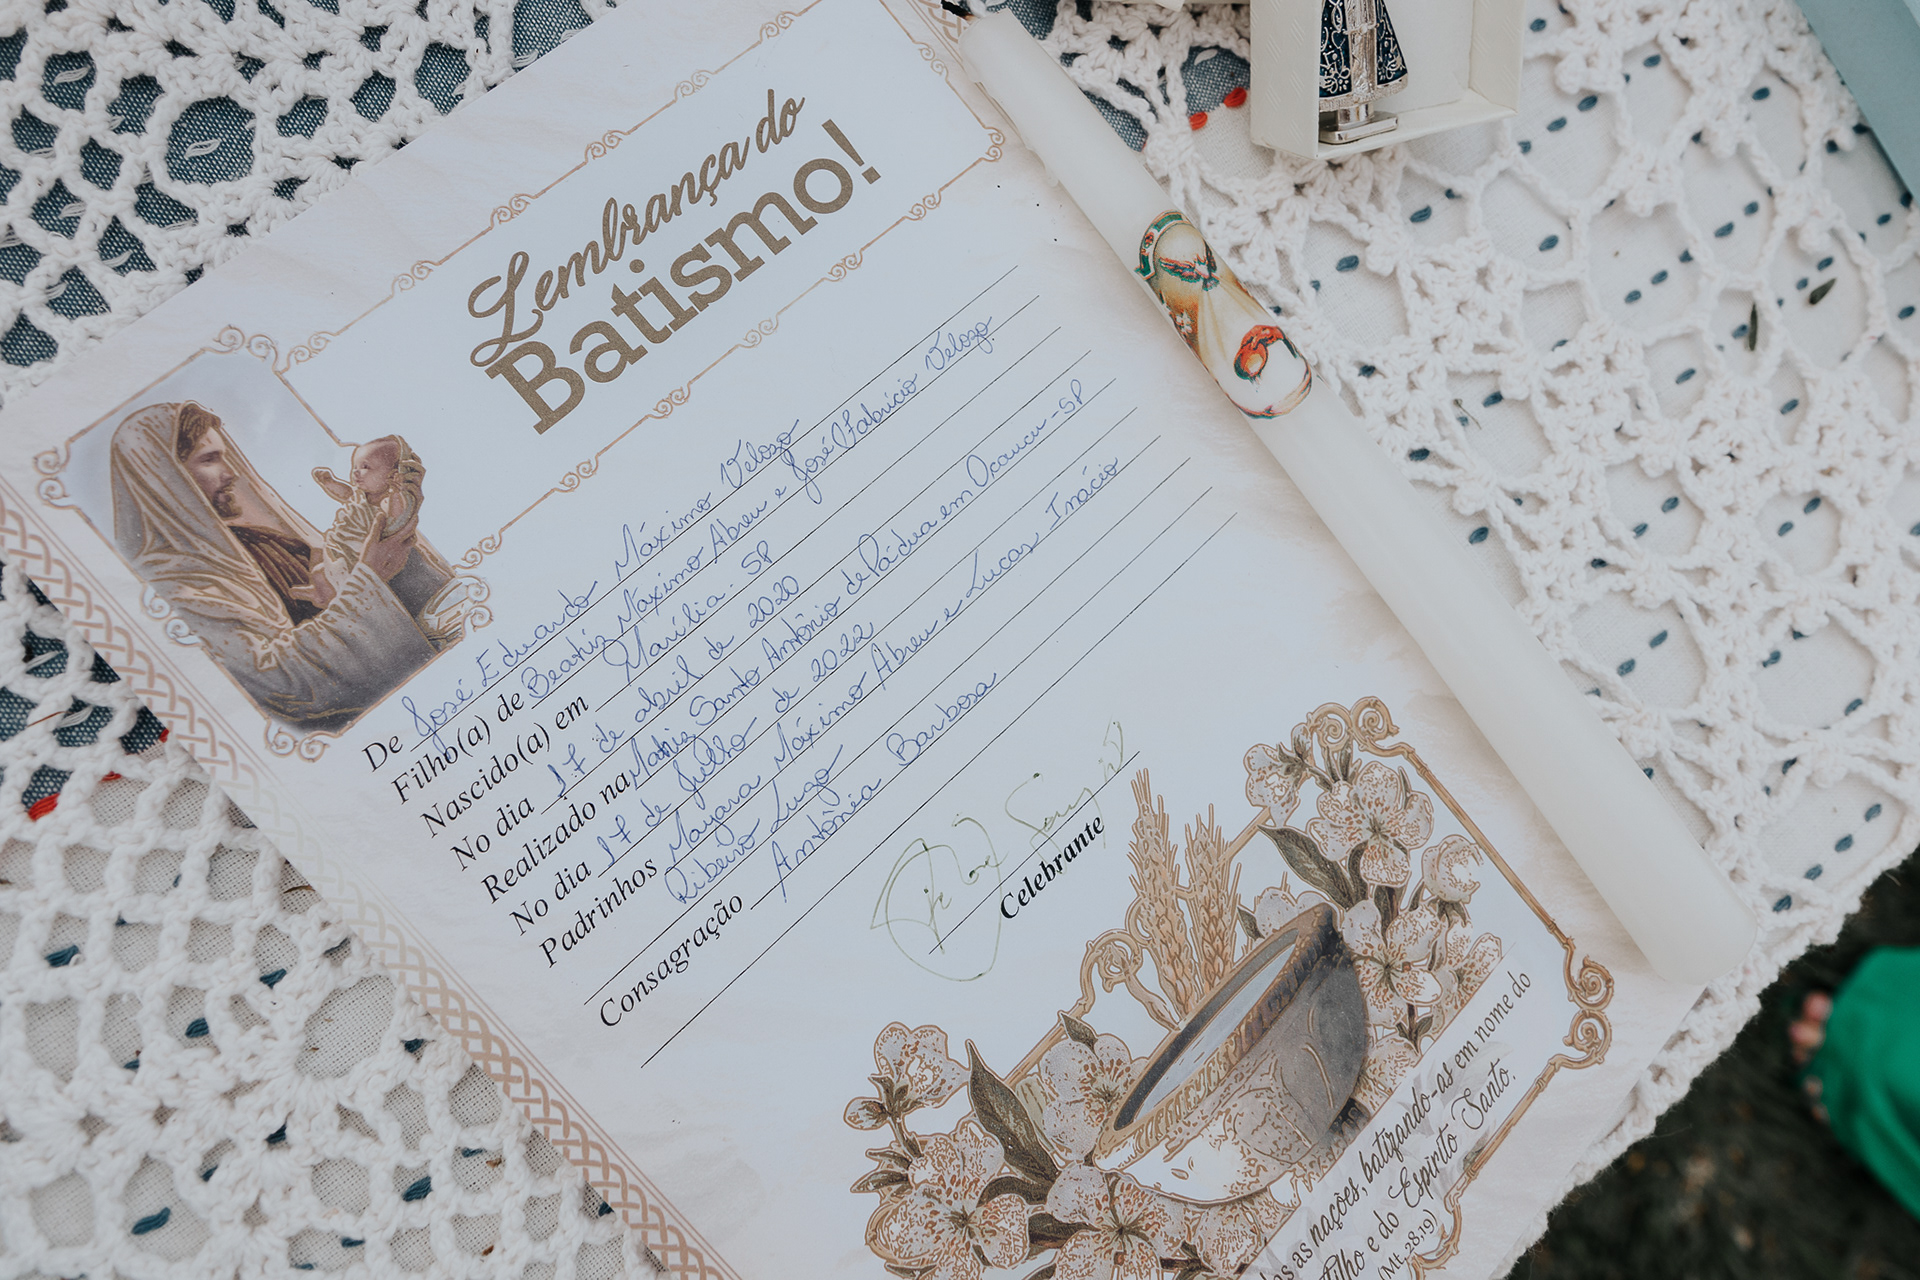 Lembrança do
Batismo!
De José Eduardo Máximo Velozo
Filho(a) de Beatriz Máximo Abreu e José Fabrício Velozo.
Nascido(a) em Marília - SP
No dia 17 de abril de 2020
Realizado na Matriz Santo Antônio de Pádua em Ocauçu - SP
No dia 17 de Julho de 2022
Padrinhos Mayara Máximo Abreu e Lucas Inácio
Ribeiro Lugo
Consagração Antônia Barbosa
Celebrante
as nações, batizando-as em nome do
ilho e do Espírito Santo.
(Mt. 28,19)